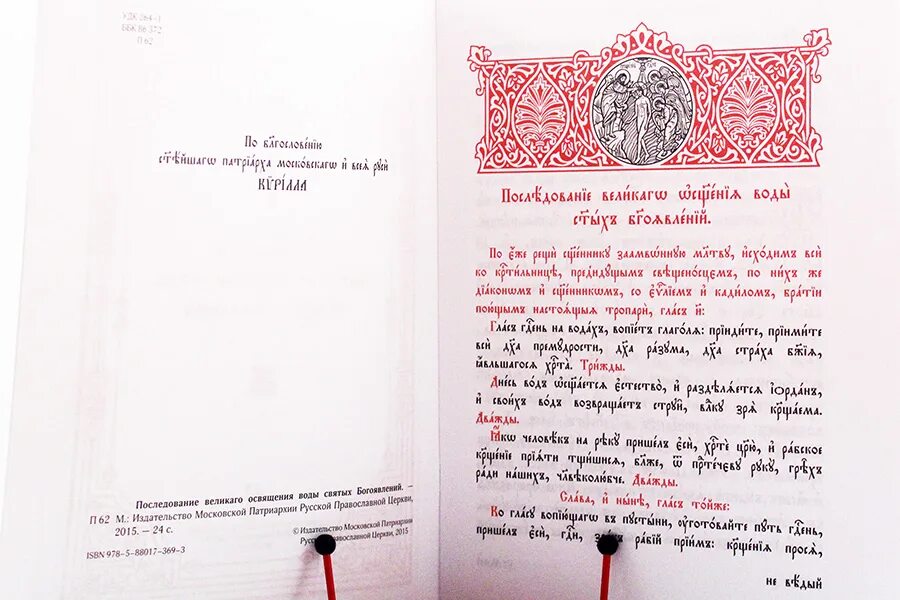 УДК 264-1
ББК 86.372
П 62
По бл҃гослове́нїю
ст҃ѣ́йшагѡ патрїа́рха моско́вскагѡ и҆ всеѧ̀ рꙋсѝ
КѴРІ́ЛЛА
Последование великаго освящения воды святых Богоявлений. —
П 62 М.: Издательство Московской Патриархии Русской Православной Церкви,
2015. — 24 с.
© Издательство Московской Патриархии
Русской Православной Церкви, 2015
ISBN 978-5-88017-369-3
Послѣ́дованїе вели́кагѡ ѡ҆сщ҃е́нїѧ воды̀
ст҃ы́хъ бг҃оѧвле́нїй.
По є҆́же рещѝ сщ҃е́нникꙋ заамвѡ́ннꙋю мл҃твꙋ, и҆схо́димъ всѝ
ко крⷭ҇ти́льницѣ, предидꙋ́щымъ свѣщено́сцемъ, по ни́хъ же
дїа́кономъ и҆ сщ҃е́нникѡмъ, со є҆ѵⷢ҇лїемъ и҆ кади́ломъ, бра́тїи
пою́щымъ настоѧ́щыѧ тропарѝ, гла́съ и҃:
Гла́съ гдⷭ҇ень на вода́хъ, вопїе́тъ глаго́лѧ: прїиди́те, прїими́те
всѝ дх҃а премⷣрости, дх҃а ра́зꙋма, дх҃а стра́ха бж҃їѧ,
ꙗ҆́вльшагосѧ хрⷭ҇та̀. Три́жды.
Дне́сь во́дъ ѡ҆сщ҃а́етсѧ є҆стество̀, и҆ раздѣлѧ́етсѧ і҆ѻрда́нъ,
и҆ свои́хъ во́дъ возвраща́етъ стрꙋи̑, влⷣкꙋ зрѧ̀ крⷭ҇ща́ема.
Два́жды.
Ꙗ҆́кѡ человѣ́къ на рѣ́кꙋ прише́лъ є҆сѝ, хрⷭ҇тѐ цр҃ю̀, и҆ ра́бское
крⷭ҇ще́нїе прїѧ́ти тщи́шисѧ, бл҃же, ѿ прⷣте́чевꙋ рꙋкꙋ̀, грѣ̑хъ
ра́ди на́шихъ, чл҃вѣколю́бче. Два́жды.
Сла́ва, и҆ ны́нѣ, гла́съ то́йже:
Ко гла́сꙋ вопїю́щагѡ въ пꙋсты́ни, ᲂу҆гото́вайте пꙋ́ть гдⷭ҇ень,
прише́лъ є҆сѝ, гдⷭ҇и, ра́бїй прїи́мъ: крⷭ҇ще́нїѧ просѧ̀,
не вѣ́дый